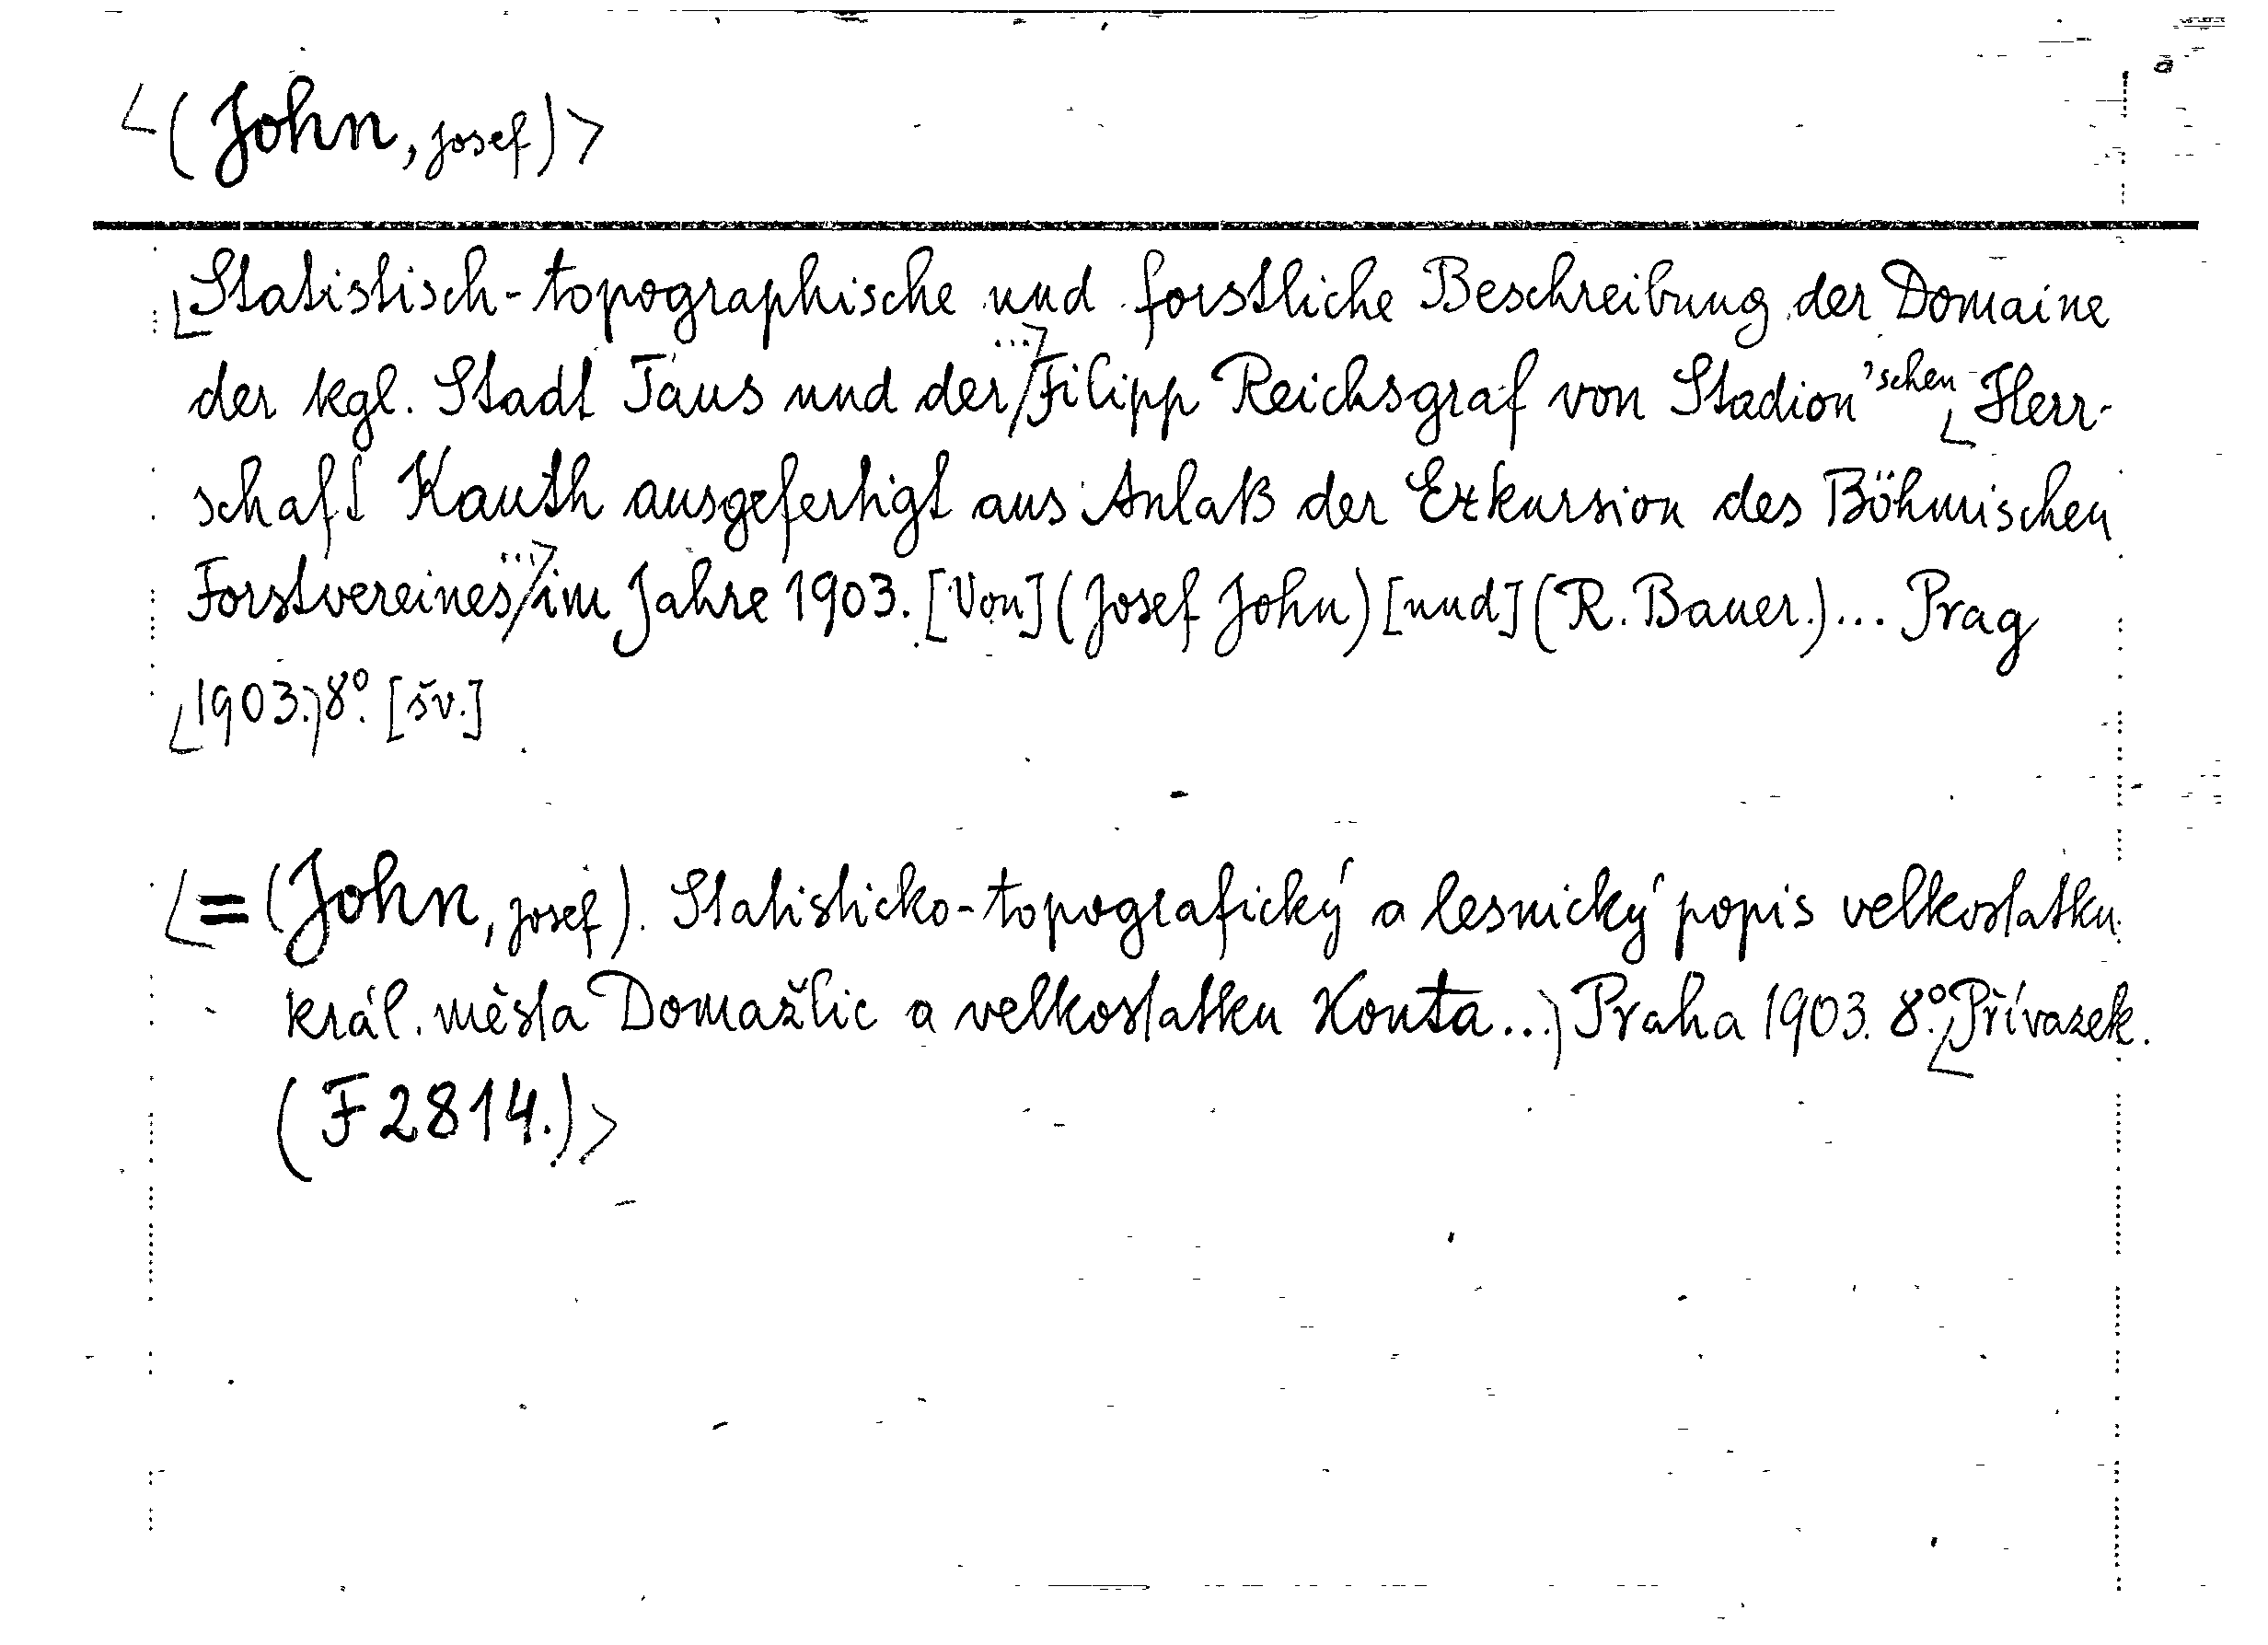 <(John, Josef)>
<Statistisch-topographische und forstliche Beschreibung der Domaine
der kgl. Stadt Taus und der ...>/Filipp Reichsgraf von Stadion'schen <Herr-
schaft Kauth ausgefertigt aus Anlaß der Exkursion des Böhmischen
Forstvereines ...>/im Jahre 1903. [Von] (Josef John) [und] (R. Bauer.) ... Prag
<1903.) 8°. [šv.]
<= (John, Josef). Statisticko-topografický a lesnický popis velkostatku
král. města Domažlic a velkostatku Kouta ...) Praha 1903. 8°. <Přívazek.
(F 2814.)>